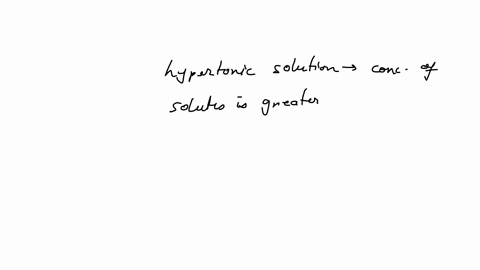 hypertonic solution → conc. of
solutes is greater